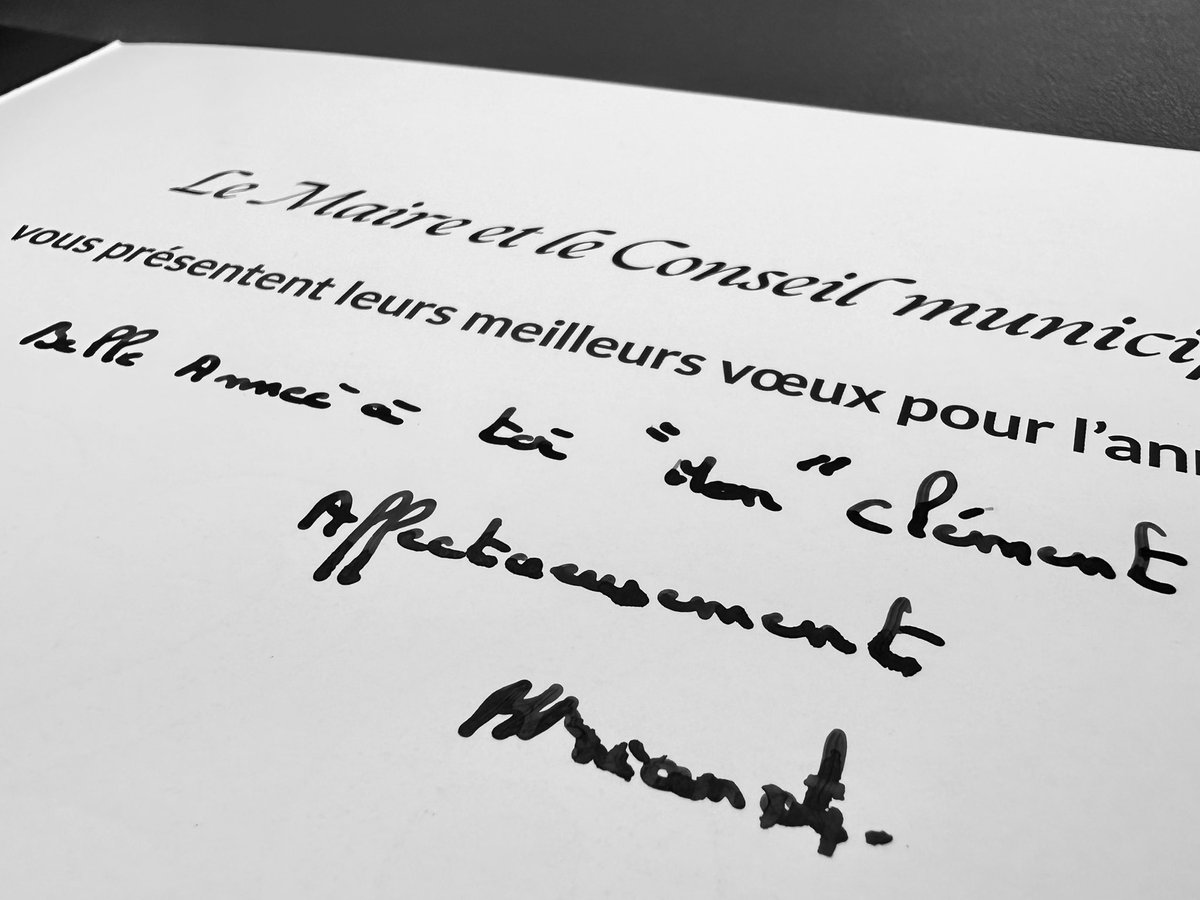 Le Maire et le Conseil municip
vous présentent leurs meilleurs vœux pour l'ann
Belle Année à toi "mon" Clément
Affectueusement